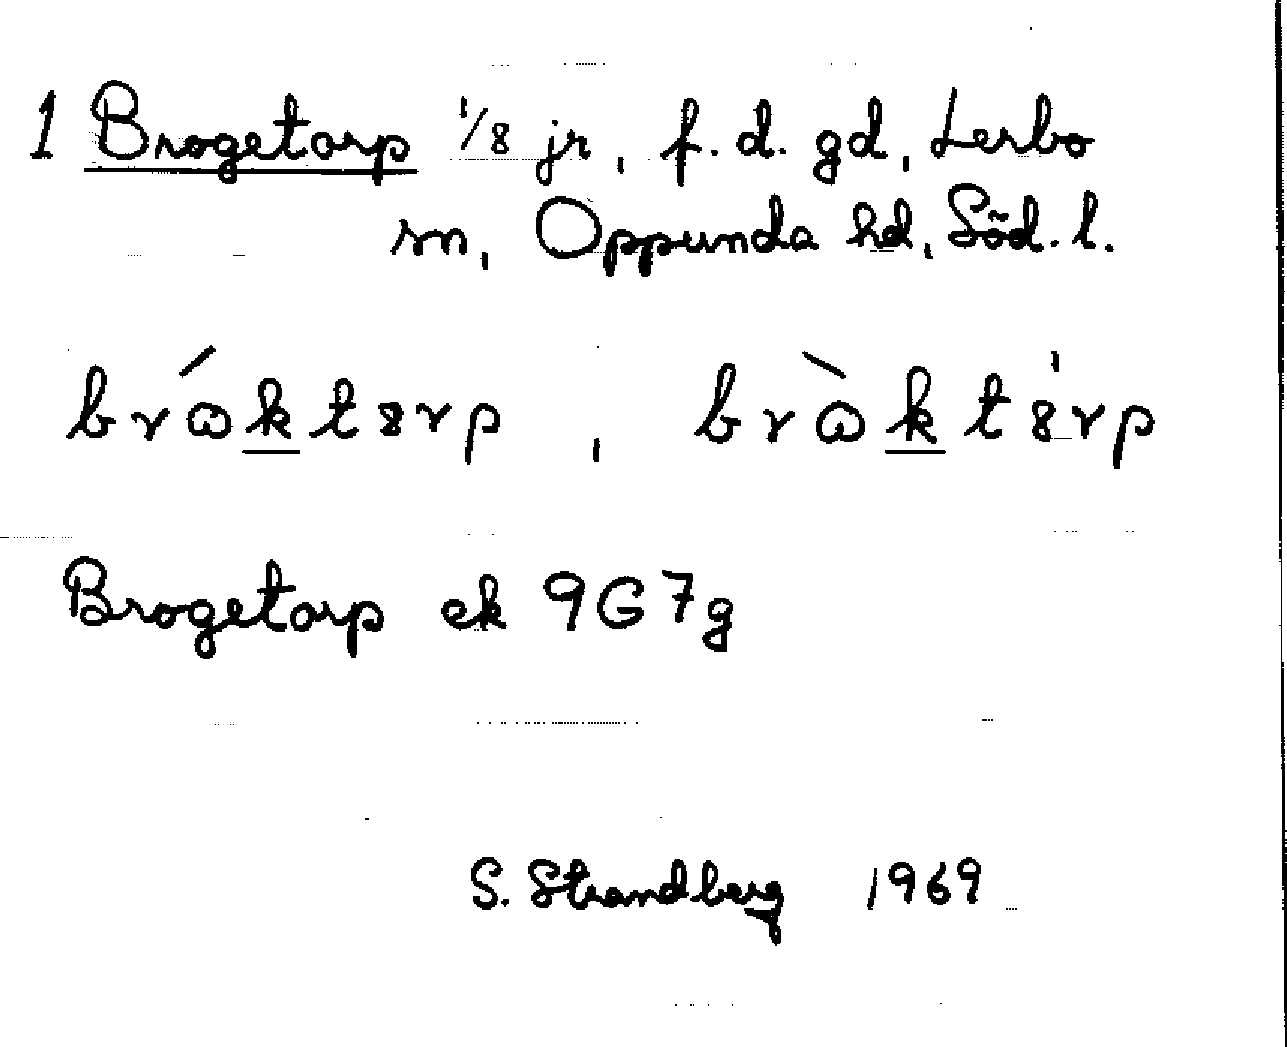 1 Brogetorp 1/8 jr, f.d. gd, Lerbo
sn, Oppunda hd, Söd. l.
brɷ́k̲tɜrp, brɷ̀k̲tɜ̍rp
Brogetorp ek 9G7g
S. Strandberg 1969